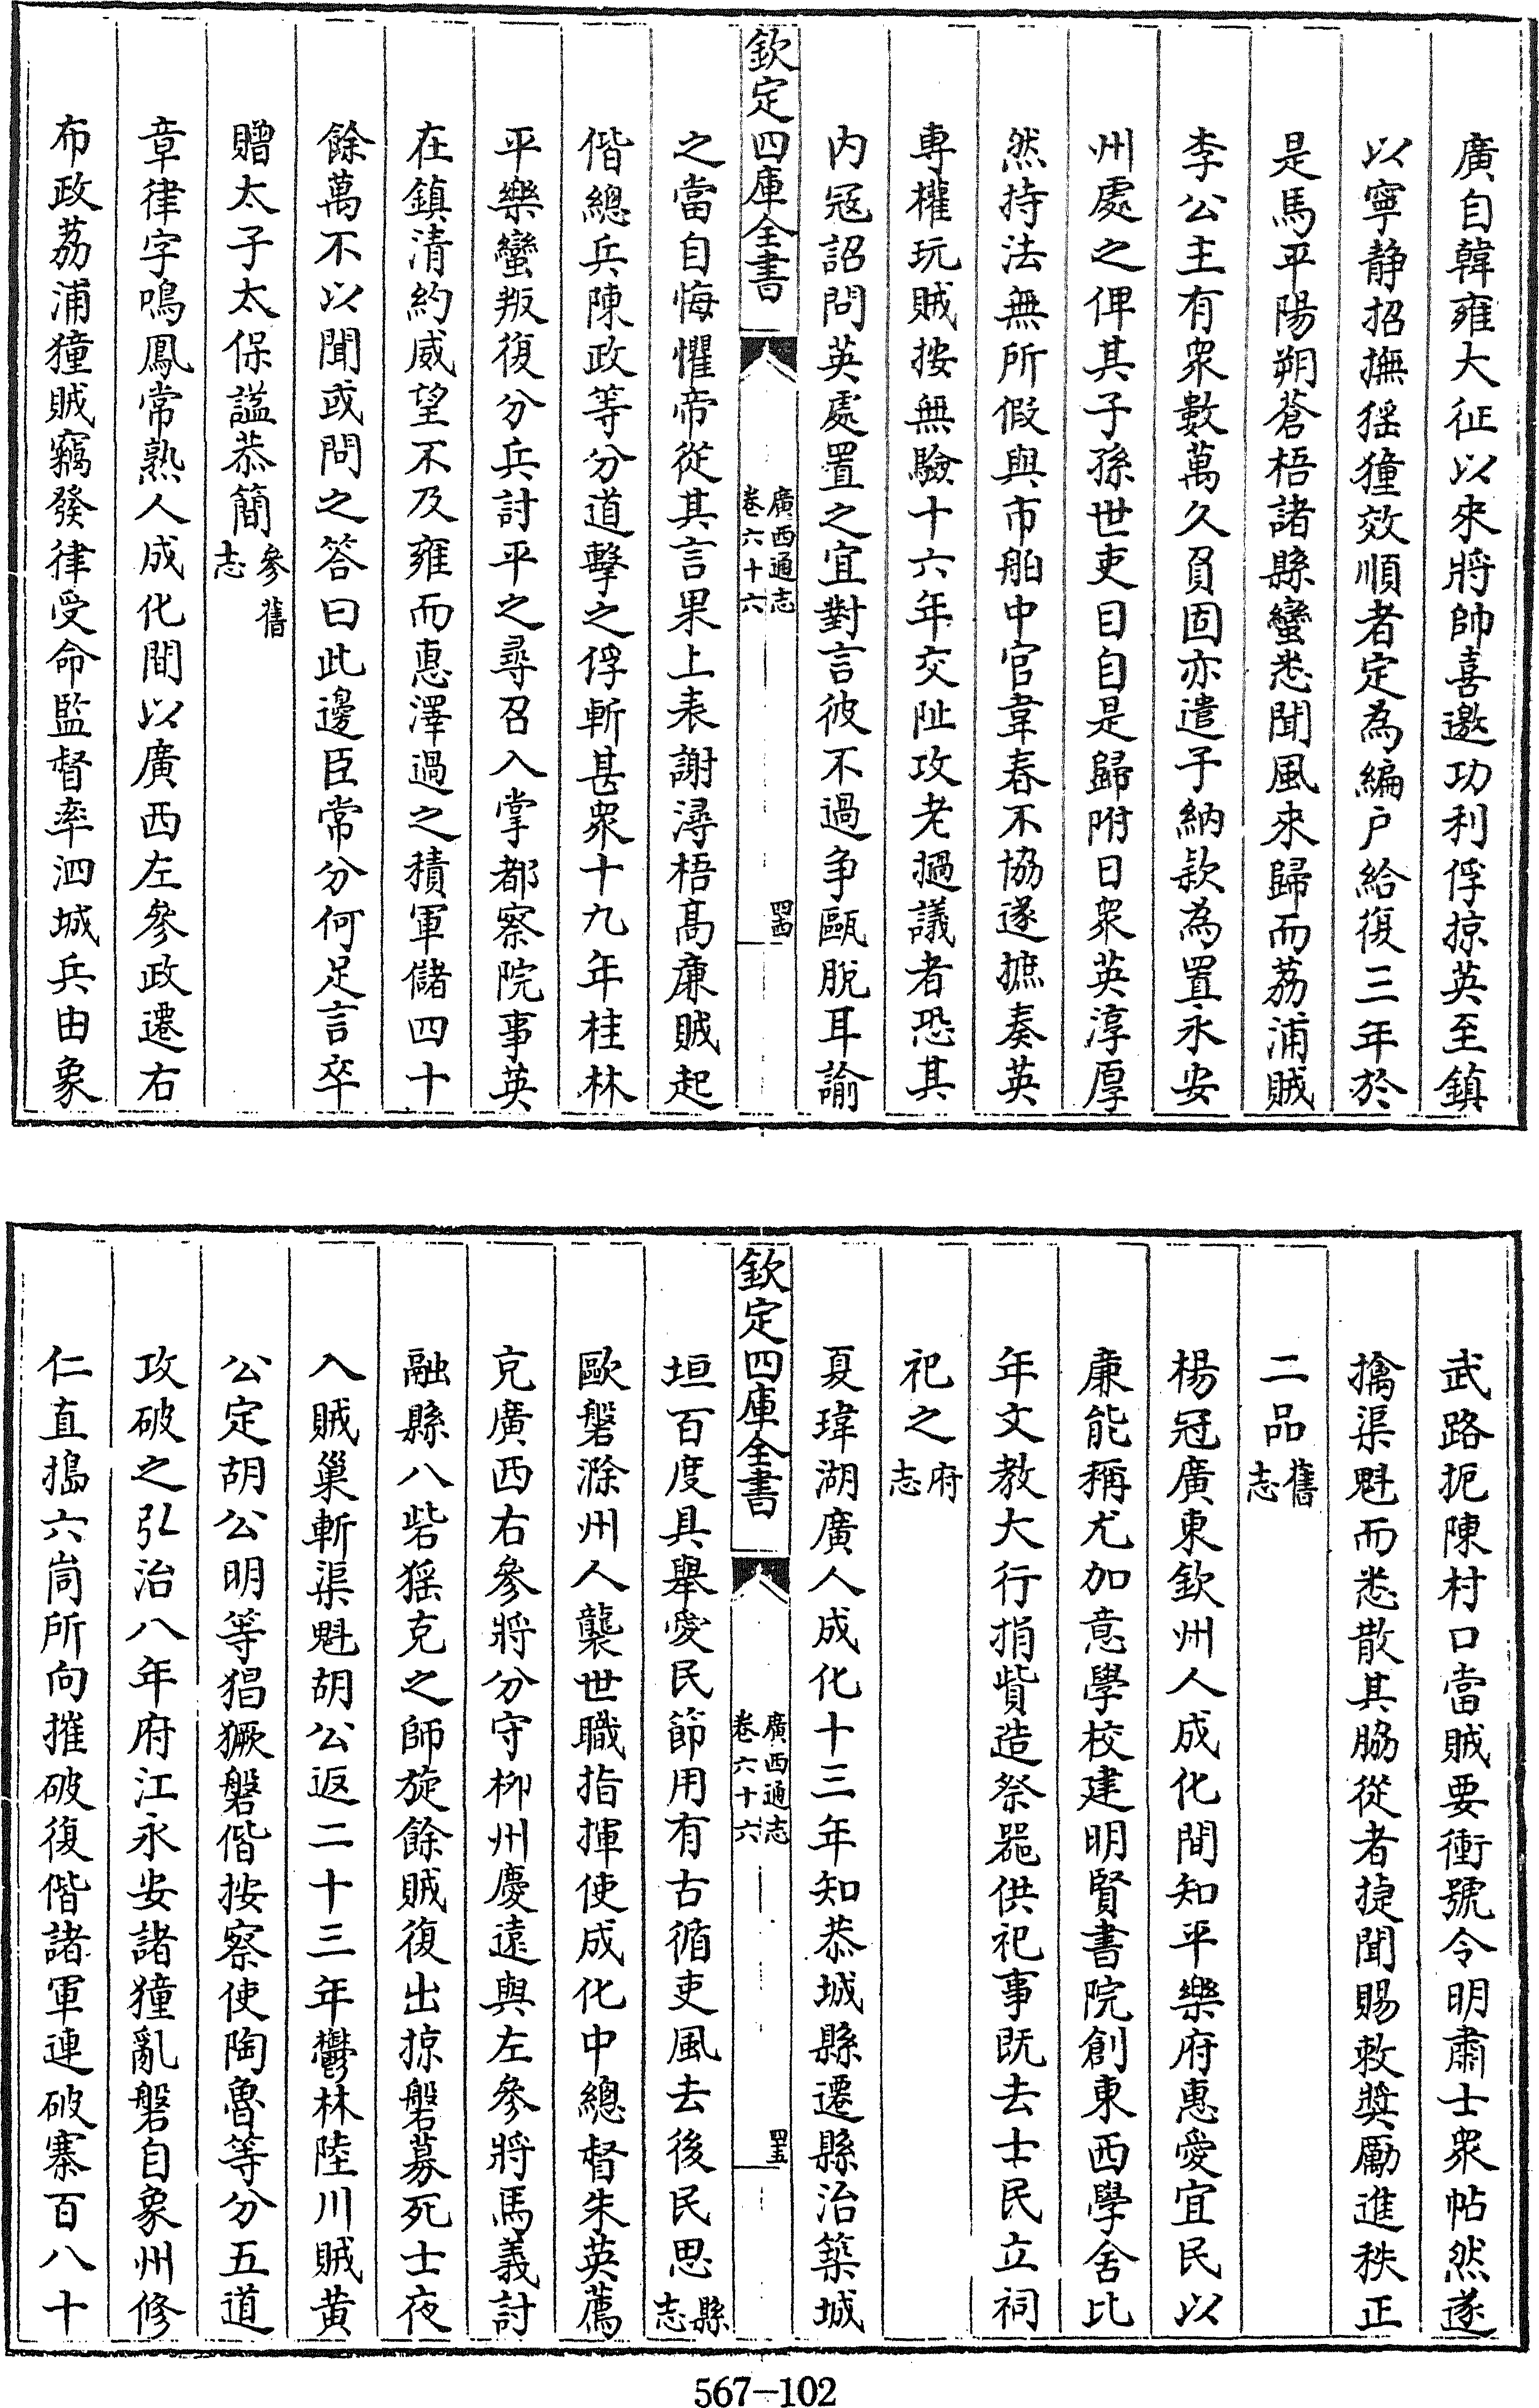 廣自韓雍大征以來將帥喜邀功利俘掠英至鎮
以寧静招撫猺獞效順者定為編户給復三年於
是馬平陽朔蒼梧諸縣蠻悉聞風來歸而荔浦賊
李公主有衆數萬久負固亦遣子納款為置永安
州處之俾其子孫世吏目自是歸附日衆英淳厚
然持法無所假與市舶中官韋春不協遂摭奏英
専權玩賊按無驗十六年交阯攻老撾議者恐其
内冦詔問英處置之宜對言彼不過争甌脫耳諭
欽定四庫全書
廣西通志
卷六十六
四四
之當自悔懼帝從其言果上表謝潯梧髙廉賊起
偕總兵陳政等分道擊之俘斬甚衆十九年桂林
平樂蠻叛復分兵討平之尋召入掌都察院事英
在鎮清約威望不及雍而惠澤過之積軍儲四十
餘萬不以聞或問之答曰此邊臣常分何足言卒
贈太子太保謚恭簡參舊志
章律字鳴鳳常熟人成化間以廣西左參政遷右
布政荔浦獞賊竊發律受命監督率泗城兵由象
武路扼陳村口當賊要衝號令明肅士衆帖然遂
擒渠魁而悉散其脇從者捷聞賜敕奬勵進秩正
二品舊志
楊冠廣東欽州人成化間知平樂府惠愛宜民以
亷能稱尤加意學校建明賢書院創東西學舍比
年文教大行捐貲造祭器供祀事既去士民立祠
祀之府志
夏瑋湖廣人成化十三年知恭城縣遷縣治築城
欽定四庫全書
廣西通志
卷六十六
四五
垣百度具舉愛民節用有古循吏風去後民思縣志
歐磐滁州人襲世職指揮使成化中總督朱英薦
充廣西右參將分守柳州慶遠與左參將馬義討
融縣八砦猺克之師旋餘賊復出掠磐募死士夜
入賊巢斬渠魁胡公返二十三年鬱林陸川賊黄
公定胡公明等猖獗磐偕按察使陶魯等分五道
攻破之弘治八年府江永安諸獞亂磐自象州修
仁直搗六峝所向摧破復偕諸軍連破寨百八十
567-102